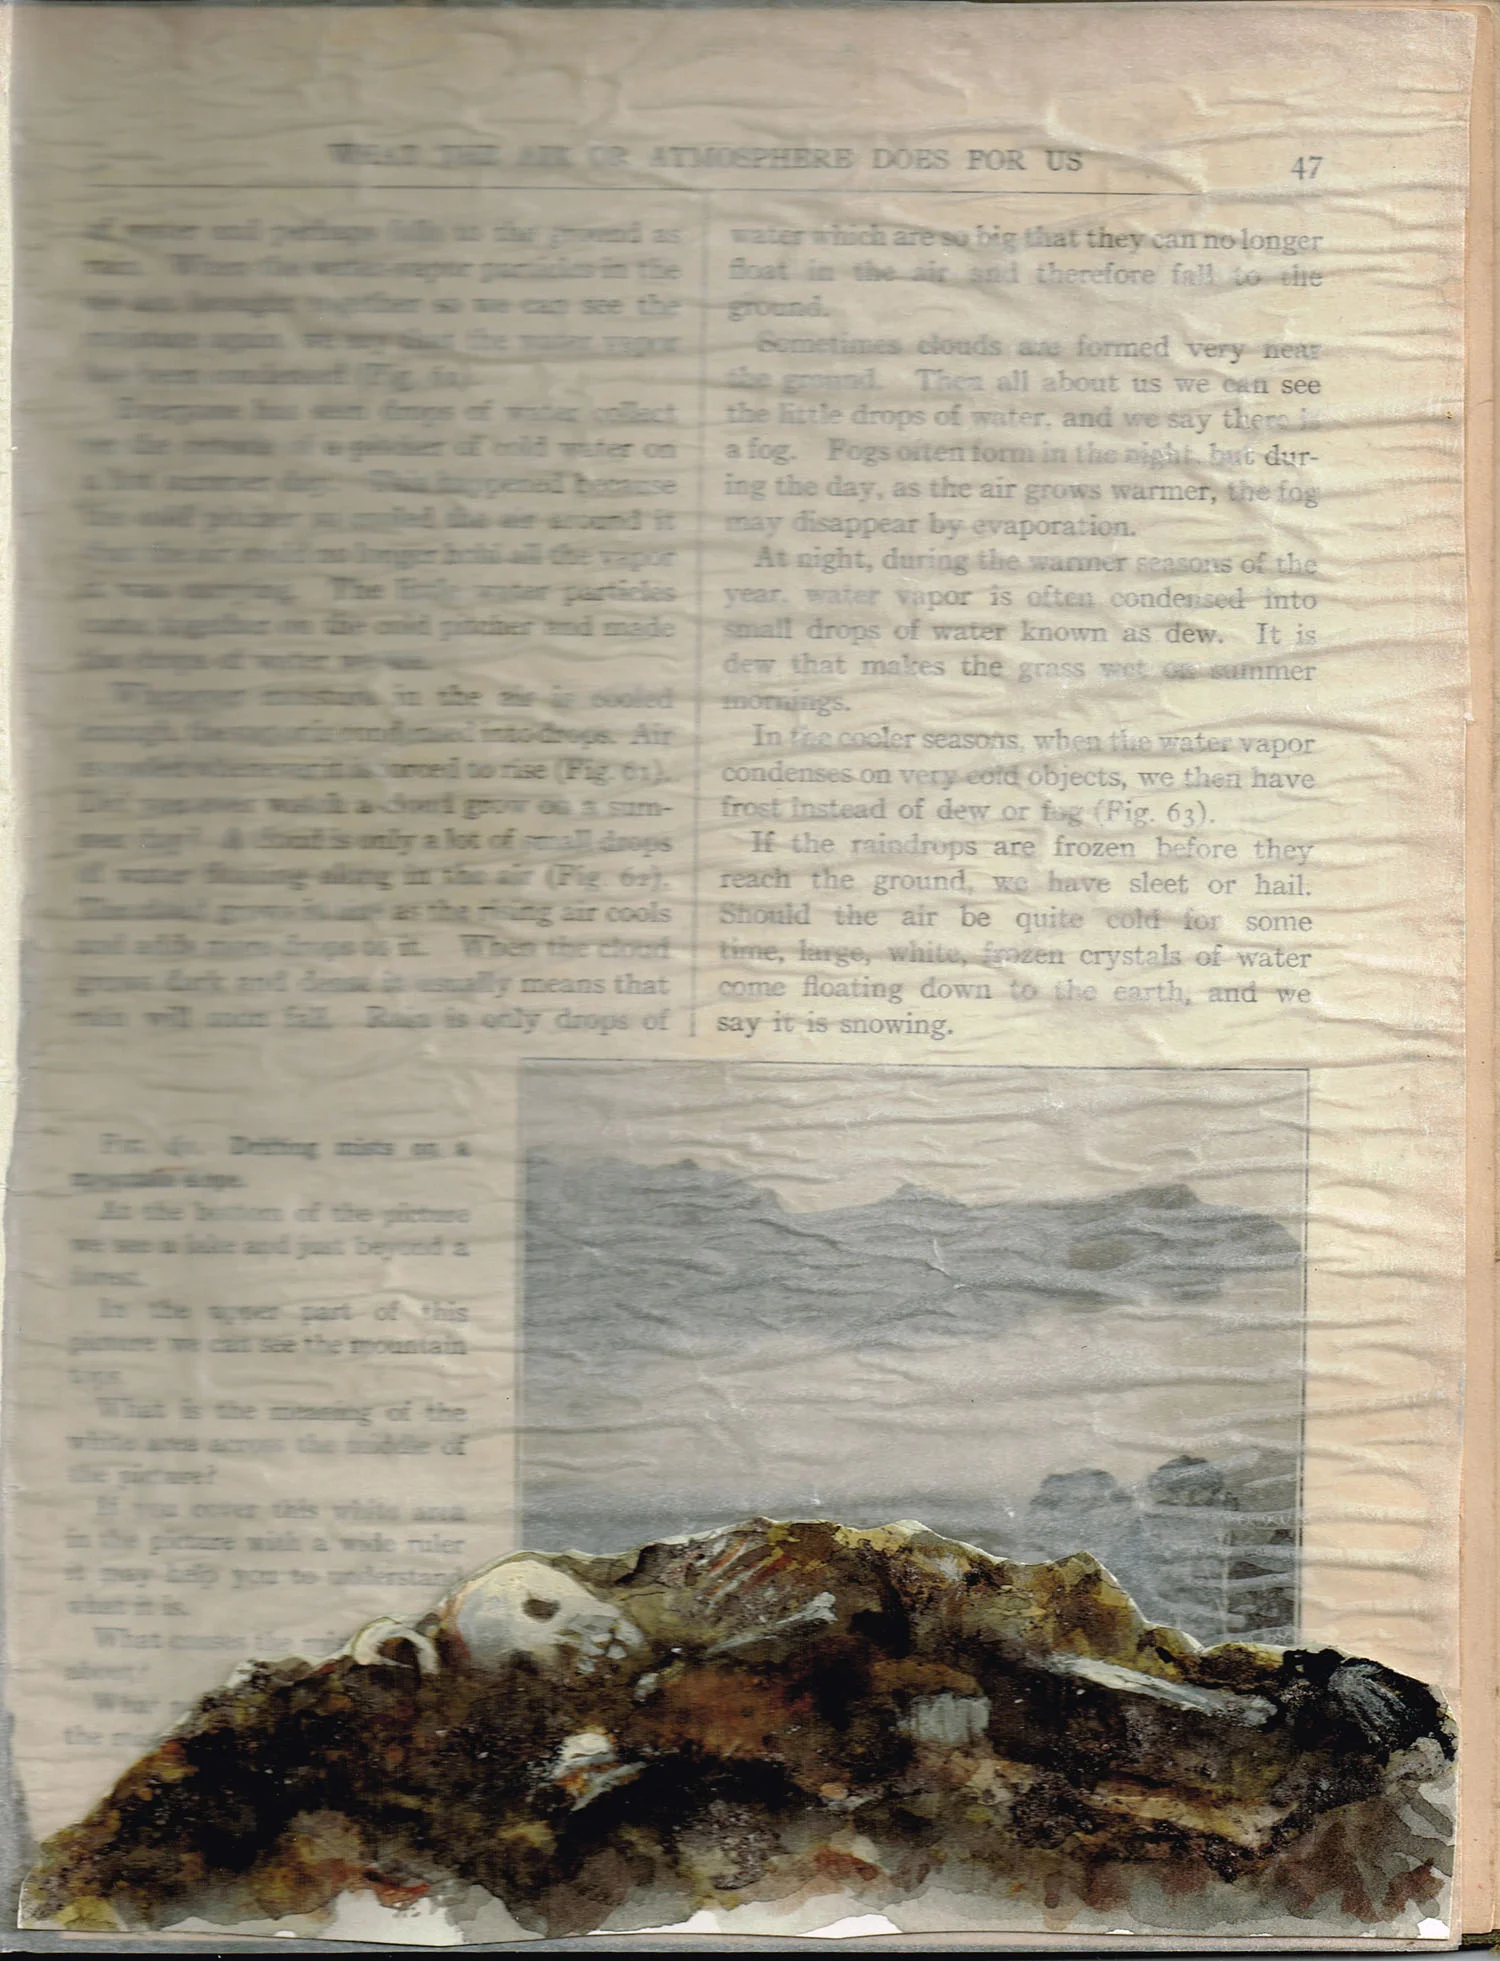 WHAT THE AIR OR ATMOSPHERE DOES FOR US
47
of water and perhaps falls to the ground as
rain. When the water vapor particles in the
air are brought together so we can see the
moisture again, we say that the water vapor
has been condensed
Everyone has seen drops of water collect
on the outside of a pitcher of cold water on
a hot summer day. This happened because
the cold pitcher so cooled the air around it
that the air could no longer hold all the vapor
it was carrying. The little water particles
came together on the cold pitcher and made
the drops of water we see.
Whenever moisture in the air is cooled
enough, the vapor is condensed into drops. Air
is cooled whenever it is forced to rise (Fig. 61).
Did you ever watch a cloud grow on a sum-
mer day? A cloud is only a lot of small drops
of water floating along in the air (Fig. 62).
The cloud grows as the rising air cools
and adds more drops to it. When the cloud
grows dark and dense it usually means that
rain will soon fall. Rain is only drops of
water which are so big that they can no longer
float in the air and therefore fall to the
ground.
Sometimes clouds are formed very near
the ground. Then all about us we can see
the little drops of water, and we say there is
a fog. Fogs often form in the night, but dur-
ing the day, as the air grows warmer, the fog
may disappear by evaporation.
At night, during the warmer seasons of the
year, water vapor is often condensed into
small drops of water known as dew. It is
dew that makes the grass wet on summer
mornings.
In the cooler seasons, when the water vapor
condenses on very cold objects, we then have
frost instead of dew or fog (Fig. 63).
If the raindrops are frozen before they
reach the ground, we have sleet or hail.
Should the air be quite cold for some
time, large, white, frozen crystals of water
come floating down to the earth, and we
say it is snowing.
Fig. Drifting mists on a
mountain slope.
At the bottom of the picture
we see a lake and just beyond a
forest.
In the upper part of this
picture we can see the mountain
tops.
What is the meaning of the
white area across the middle of
the picture?
If you cover this white area
in the picture with a wide ruler
it may help you to understand
what it is.
What causes the
above?
What
the